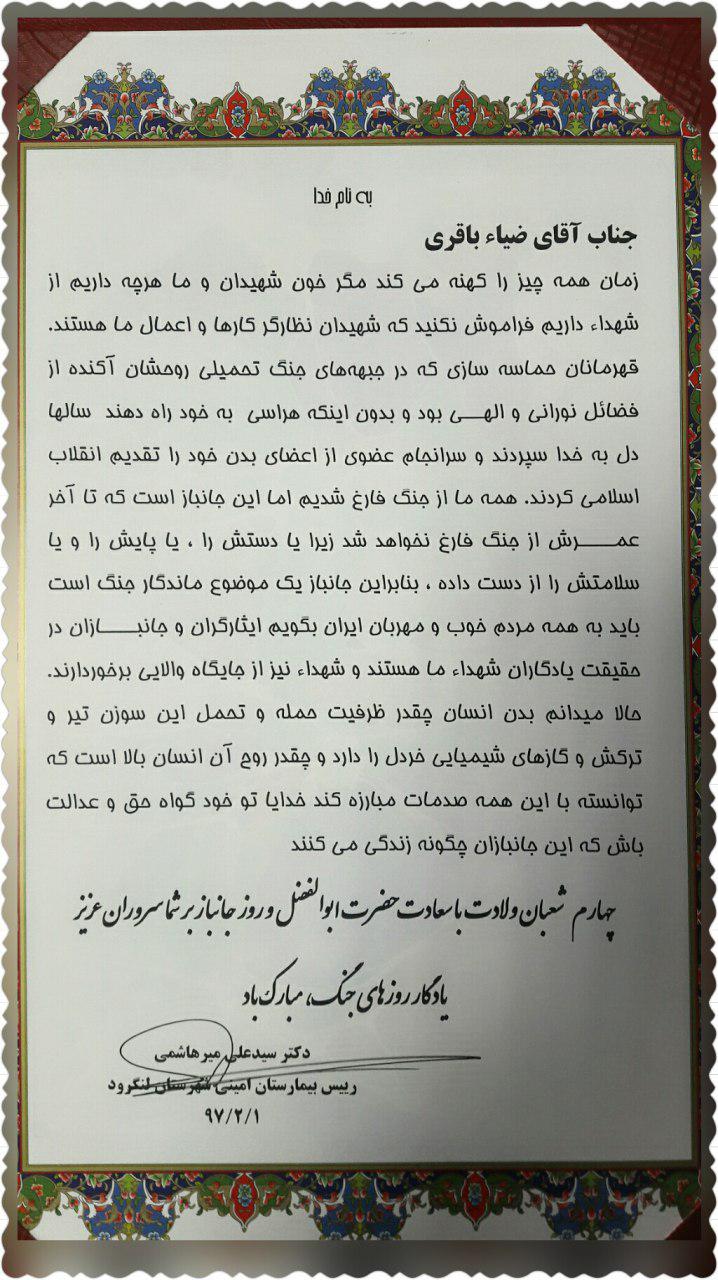 به نام خدا
جناب آقای ضیاء باقری
زمان همه چیز را کهنه می کند مگر خون شهیدان و ما هرچه داریم از
شهداء داریم فراموش نکنید که شهیدان نظارگر کارها و اعمال ما هستند.
قهرمانان حماسه سازی که در جبهه‌های جنگ تحمیلی روحشان آکنده از
فضائل نورانی و الهـــی بود و بدون اینکه هراسی به خود راه دهند سالها
دل به خدا سپردند و سرانجام عضوی از اعضای بدن خود را تقدیم انقلاب
اسلامی کردند. همه ما از جنگ فارغ شدیم اما این جانباز است که تا آخر
عمــــرش از جنگ فارغ نخواهد شد زیرا یا دستش را ، یا پایش را و یا
سلامتش را از دست داده ، بنابراین جانباز یک موضوع ماندگار جنگ است
باید به همه مردم خوب و مهربان ایران بگویم ایثارگران و جانبــــازان در
حقیقت یادگاران شهداء ما هستند و شهداء نیز از جایگاه والایی برخوردارند.
حالا میدانم بدن انسان چقدر ظرفیت حمله و تحمل این سوزن تیر و
ترکش و گازهای شیمیایی خردل را دارد و چقدر روح آن انسان بالا است که
توانسته با این همه صدمات مبارزه کند خدایا تو خود گواه حق و عدالت
باش که این جانبازان چگونه زندگی می کنند
چهارم شعبان ولادت با سعادت حضرت ابوالفضل و روز جانباز بر شما سروران عزیز
یادگار روزهای جنگ، مبارک باد
دکتر سیدعلی میرهاشمی
رییس بیمارستان امینی شهرستان لنگرود
۹۷/۲/۱